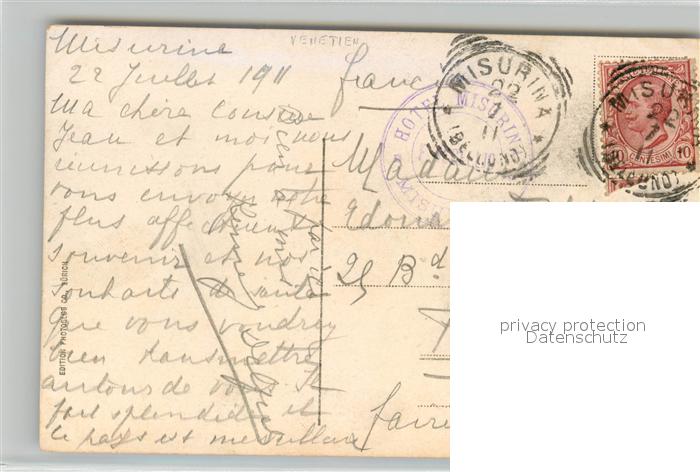 Misurina
22 Juillet 1911
Ma chère cousine
Jean et moi nous
réunissons pour
vous envoyer notre
plus affectueux
souvenir et nos
souhaits de santé
que vous voudrez
bien transmettre
autour de vous. Il
fait splendide et
le pays est merveilleux
VENETIEN
MISURINA
22
7
11
(BELLUNO)
HOTEL MISURINA
MISURINA
22
7
11
(BELLUNO)
10 CENTESIMI 10
Madame
Edoua
25 Bd
faire
EDITION PHOTOGLOB CO., ZÜRICH
privacy protection
Datenschutz